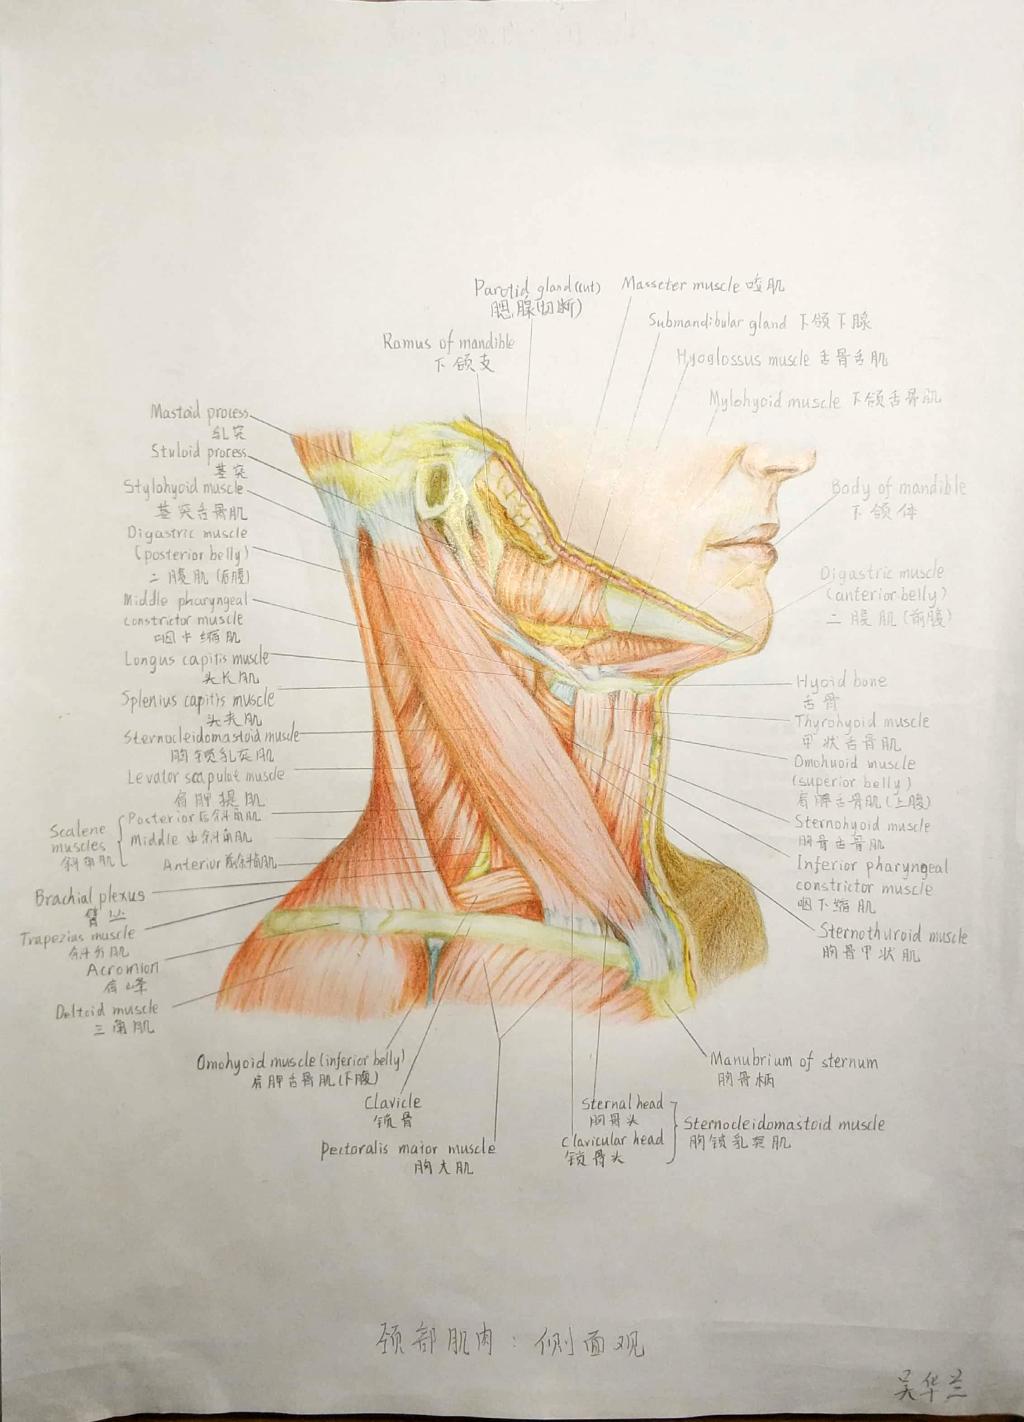 Parotid gland (cut)
腮腺(切断)
Masseter muscle 咬肌
Submandibular gland 下颌下腺
Ramus of mandible
下颌支
Hyoglossus muscle 舌骨舌肌
Mylohyoid muscle 下颌舌骨肌
Mastoid process
乳突
Stuloid process
茎突
Stylohyoid muscle
茎突舌骨肌
Digastric muscle
(posterior belly)
二腹肌(后腹)
Middle pharyngeal
constrictor muscle
咽中缩肌
Longus capitis muscle
头长肌
Splenius capitis muscle
头夹肌
Sternocleidomastoid muscle
胸锁乳突肌
Levator scapulat muscle
肩胛提肌
Scalene
muscles
斜角肌
Posterior 后斜角肌
Middle 中斜角肌
Anterior 前斜角肌
Brachial plexus
臂丛
Trapezius muscle
斜方肌
Acromion
肩峰
Deltoid muscle
三角肌
Body of mandible
下颌体
Digastric muscle
(anterior belly)
二腹肌(前腹)
Hyoid bone
舌骨
Thyrohyoid muscle
甲状舌骨肌
Omohuoid muscle
(superior belly)
肩胛舌骨肌(上腹)
Sternohyoid muscle
胸骨舌骨肌
Inferior pharyngeal
constrictor muscle
咽下缩肌
Sternothuroid muscle
胸骨甲状肌
Omohyoid muscle (inferior belly)
肩胛舌骨肌(下腹)
Clavicle
锁骨
Pectoralis major muscle
胸大肌
Sternal head
胸骨头
Clavicular head
锁骨头
Sternocleidomastoid muscle
胸锁乳突肌
Manubrium of sternum
胸骨柄
颈部肌肉：侧面观
吴华兰